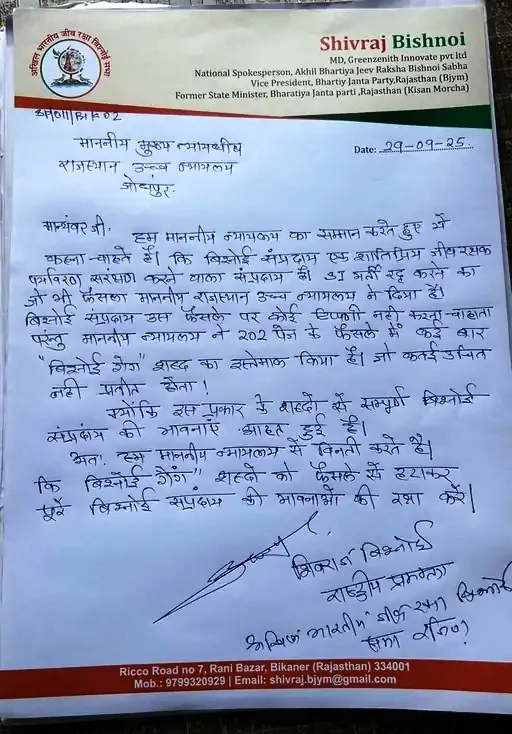 अखिल भारतीय जीव रक्षा बिश्नोई सभा
Shivraj Bishnoi
MD, Greenzenith Innovate pvt ltd
National Spokesperson, Akhil Bhartiya Jeev Raksha Bishnoi Sabha
Vice President, Bhartiy Janta Party,Rajasthan (Bjym)
Former State Minister, Bharatiya Janta parti ,Rajasthan (Kisan Morcha)
माननीय मुख्य न्यायधीश
Date: 29-09-25.
राजस्थान उच्च न्यायलय
जोधपुर.
मान्यवर जी, हम माननीय न्यायलय का सम्मान करते हुए ये
कहना चाहते हैं। कि बिश्नोई संप्रदाय एक शांतिप्रिय जीव रक्षक
पर्यावरण सरंक्षण करने वाला संप्रदाय है। SI भर्ती रद्द करने का
जो भी फैसला माननीय राजस्थान उच्च न्यायलय ने दिया है।
बिश्नोई संप्रदाय उस फैसले पर कोई टिप्पणी नही करना चाहता
परंतु माननीय न्यायलय ने 202 पेज के फैसले में कई बार
"बिश्नोई गैंग" शब्द का इस्तेमाल किया है। जो कतई उचित
नही प्रतीत होता!
क्योंकि इस प्रकार के शब्दो से सम्पूर्ण बिश्नोई
संप्रदाय की भावनाएं आहत हुई है।
अतः हम माननीय न्यायलय से विनती करते है।
कि बिश्नोई गैंग" शब्दो को फैसले से हटाकर
पूरे बिश्नोई संप्रदाय की भावनाओं की रक्षा करें।
शिवराज बिश्नोई
राष्ट्रीय प्रवक्ता
अखिल भारतीय जीव रक्षा बिश्नोई
सभा
Ricco Road no 7, Rani Bazar, Bikaner (Rajasthan) 334001
Mob.: 9799320929 | Email: shivraj.bjym@gmail.com